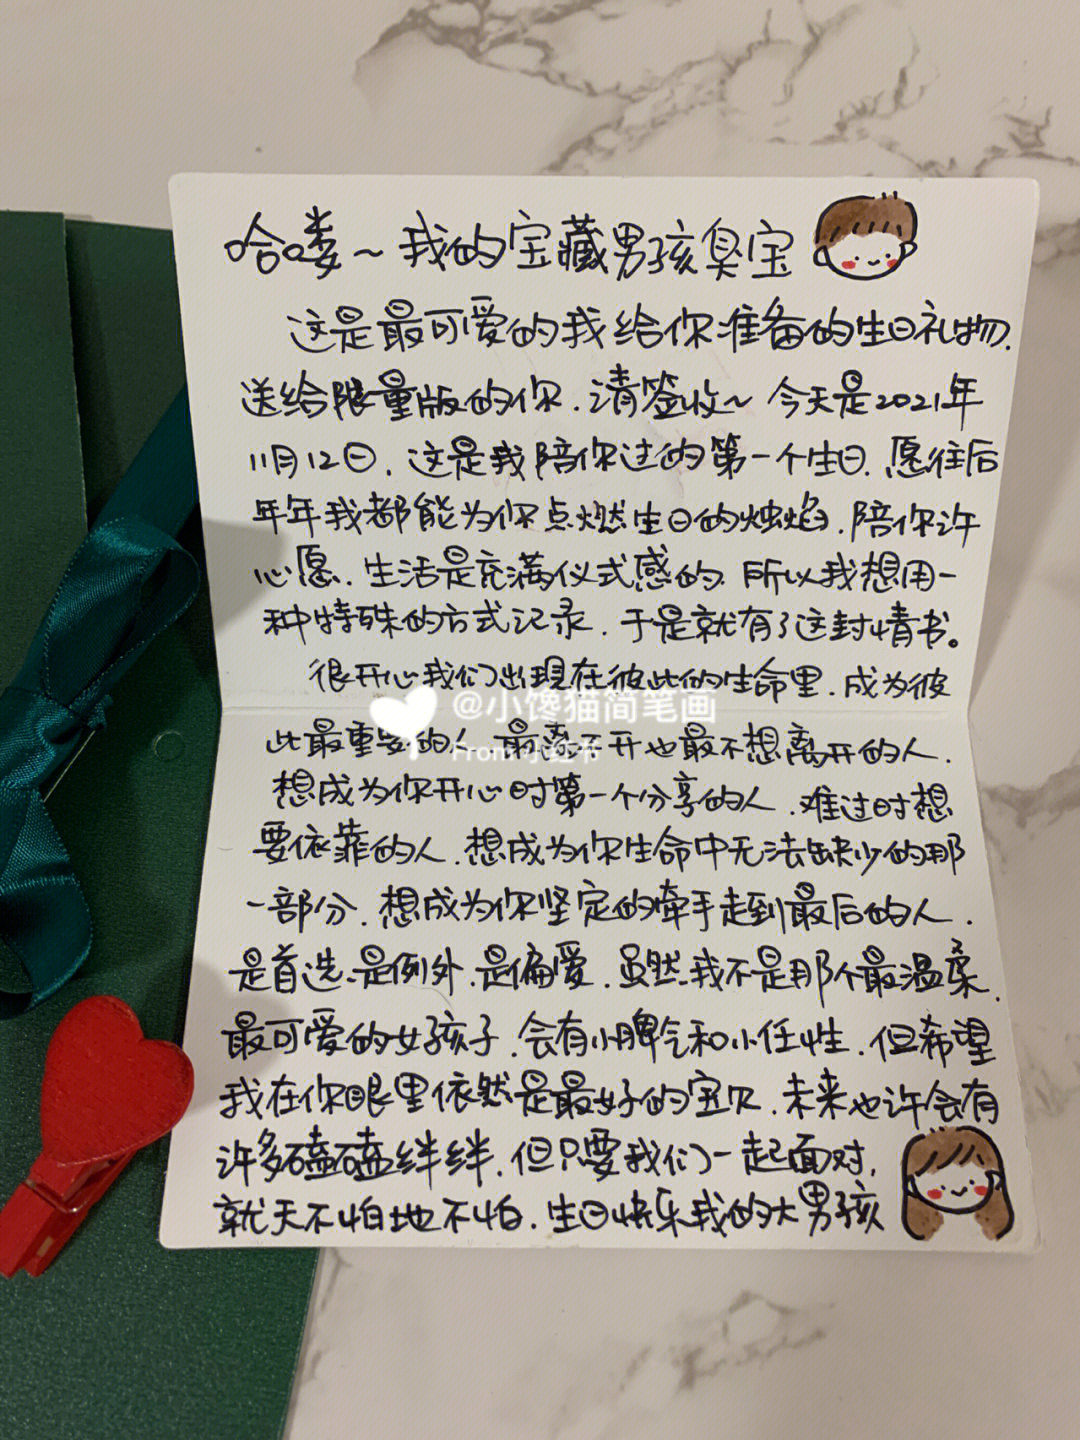 哈喽~我的宝藏男孩臭宝
这是最可爱的我给你准备的生日礼物.
送给限量版的你.请签收~今天是2021年
11月12日.这是我陪你过的第一个生日.愿往后
年年我都能为你点燃生日的烛焰.陪你许
心愿.生活是充满仪式感的.所以我想用一
种特殊的方式记录.于是就有了这封情书。
很开心我们出现在彼此的生命里.成为彼
@小馋猫简笔画
此最重要的人.最离不开也最不想离开的人.
From 小红书
想成为你开心时第一个分享的人.难过时想
要依靠的人.想成为你生命中无法缺少的那
一部分.想成为你坚定的牵手走到最后的人.
是首选.是例外.是偏爱.虽然我不是那个最温柔.
最可爱的女孩子.会有小脾气和小任性.但希望
我在你眼里依然是最好的宝贝.未来也许会有
许多磕磕绊绊.但只要我们一起面对,
就天不怕地不怕.生日快乐我的大男孩